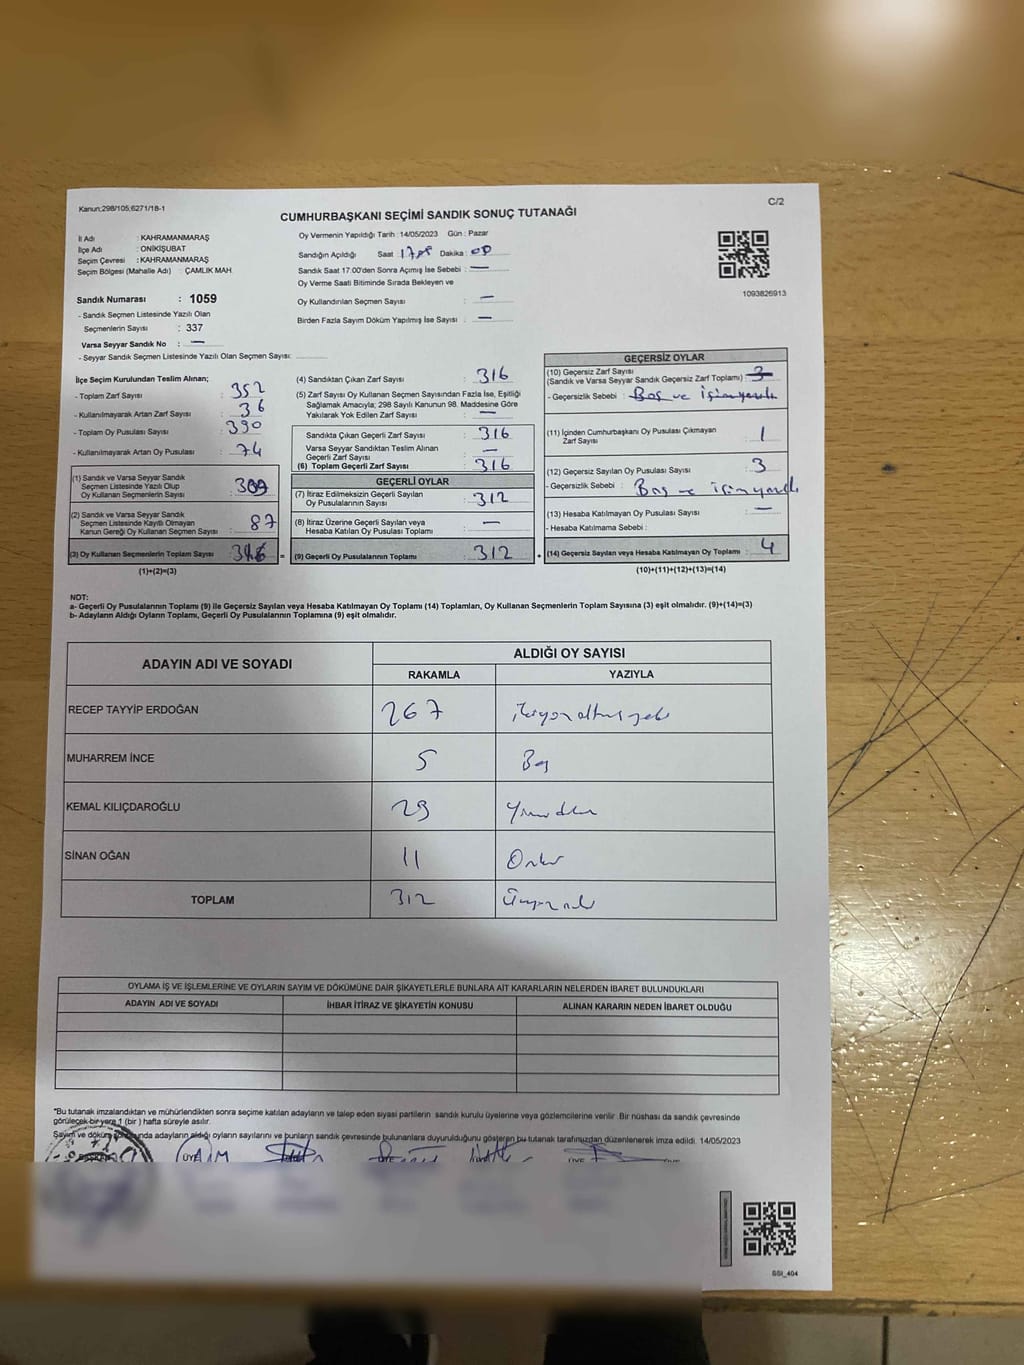 Kanun;298/105;6271/18-1
C/2
CUMHURBAŞKANI SEÇİMİ SANDIK SONUÇ TUTANAĞI
İl Adı : KAHRAMANMARAŞ
İlçe Adı : ONİKİŞUBAT
Seçim Çevresi : KAHRAMANMARAŞ
Seçim Bölgesi (Mahalle Adı) : ÇAMLIK MAH.
Sandık Numarası : 1059
- Sandık Seçmen Listesinde Yazılı Olan
Seçmenlerin Sayısı : 337
Varsa Seyyar Sandık No : —
- Seyyar Sandık Seçmen Listesinde Yazılı Olan Seçmen Sayısı:
Oy Vermenin Yapıldığı Tarih : 14/05/2023 Gün : Pazar
Sandığın Açıldığı Saat Dakika :
Sandık Saat 17.00'den Sonra Açımış İse Sebebi : —
Oy Verme Saati Bitiminde Sırada Bekleyen ve
Oy Kullandırılan Seçmen Sayısı : —
Birden Fazla Sayım Döküm Yapılmış İse Sayısı : —
1093826913
İlçe Seçim Kurulundan Teslim Alınan;
- Toplam Zarf Sayısı : 352
- Kullanılmayarak Artan Zarf Sayısı : 36
- Toplam Oy Pusulası Sayısı : 390
- Kullanılmayarak Artan Oy Pusulası : 74
(1) Sandık ve Varsa Seyyar Sandık
Seçmen Listesinde Yazılı Olup
Oy Kullanan Seçmenlerin Sayısı :
(2) Sandık ve Varsa Seyyar Sandık
Seçmen Listesinde Kayıtlı Olmayan
Kanun Gereği Oy Kullanan Seçmen Sayısı :
(3) Oy Kullanan Seçmenlerin Toplam Sayısı :
=
(1)+(2)=(3)
(4) Sandıktan Çıkan Zarf Sayısı : 316
(5) Zarf Sayısı Oy Kullanan Seçmen Sayısından Fazla İse, Eşitliği
Sağlamak Amacıyla; 298 Sayılı Kanunun 98. Maddesine Göre
Yakılarak Yok Edilen Zarf Sayısı : —
Sandıkta Çıkan Geçerli Zarf Sayısı : 316
Varsa Seyyar Sandıktan Teslim Alınan
Geçerli Zarf Sayısı : —
(6) Toplam Geçerli Zarf Sayısı : 316
GEÇERLİ OYLAR
(7) İtiraz Edilmeksizin Geçerli Sayılan
Oy Pusulalarının Sayısı : 312
(8) İtiraz Üzerine Geçerli Sayılan veya
Hesaba Katılan Oy Pusulası Toplamı : —
(9) Geçerli Oy Pusulalarının Toplamı : 312
+
GEÇERSİZ OYLAR
(10) Geçersiz Zarf Sayısı
(Sandık ve Varsa Seyyar Sandık Geçersiz Zarf Toplamı) :
- Geçersizlik Sebebi : Boş ve
(11) İçinden Cumhurbaşkanı Oy Pusulası Çıkmayan
Zarf Sayısı : 1
(12) Geçersiz Sayılan Oy Pusulası Sayısı : 3
- Geçersizlik Sebebi : Boş ve
(13) Hesaba Katılmayan Oy Pusulası Sayısı : —
- Hesaba Katılmama Sebebi :
(14) Geçersiz Sayılan veya Hesaba Katılmayan Oy Toplamı : 4
(10)+(11)+(12)+(13)=(14)
NOT:
a- Geçerli Oy Pusulalarının Toplamı (9) ile Geçersiz Sayılan veya Hesaba Katılmayan Oy Toplamı (14) Toplamları, Oy Kullanan Seçmenlerin Toplam Sayısına (3) eşit olmalıdır. (9)+(14)=(3)
b- Adayların Aldığı Oyların Toplamı, Geçerli Oy Pusulalarının Toplamına (9) eşit olmalıdır.
ADAYIN ADI VE SOYADI
ALDIĞI OY SAYISI
RAKAMLA YAZIYLA
RECEP TAYYİP ERDOĞAN 267
MUHARREM İNCE 5 Beş
KEMAL KILIÇDAROĞLU 29
SİNAN OĞAN 11
TOPLAM 312
OYLAMA İŞ VE İŞLEMLERİNE VE OYLARIN SAYIM VE DÖKÜMÜNE DAİR ŞİKAYETLERLE BUNLARA AİT KARARLARIN NELERDEN İBARET BULUNDUKLARI
ADAYIN ADI VE SOYADI İHBAR İTİRAZ VE ŞİKAYETİN KONUSU ALINAN KARARIN NEDEN İBARET OLDUĞU
"Bu tutanak imzalandıktan ve mühürlendikten sonra seçime katılan adayların ve talep eden siyasi partilerin sandık kurulu üyelerine veya gözlemcilerine verilir. Bir nüshası da sandık çevresinde
görülecek bir yere 1 (bir ) hafta süreyle asılır.
Sayım ve döküm sonunda adayların aldığı oyların sayılarını ve bunların sandık çevresinde bulunanlara duyurulduğunu gösteren bu tutanak tarafımızdan düzenlenerek imza edildi. 14/05/2023
ÜYE
SSI_404